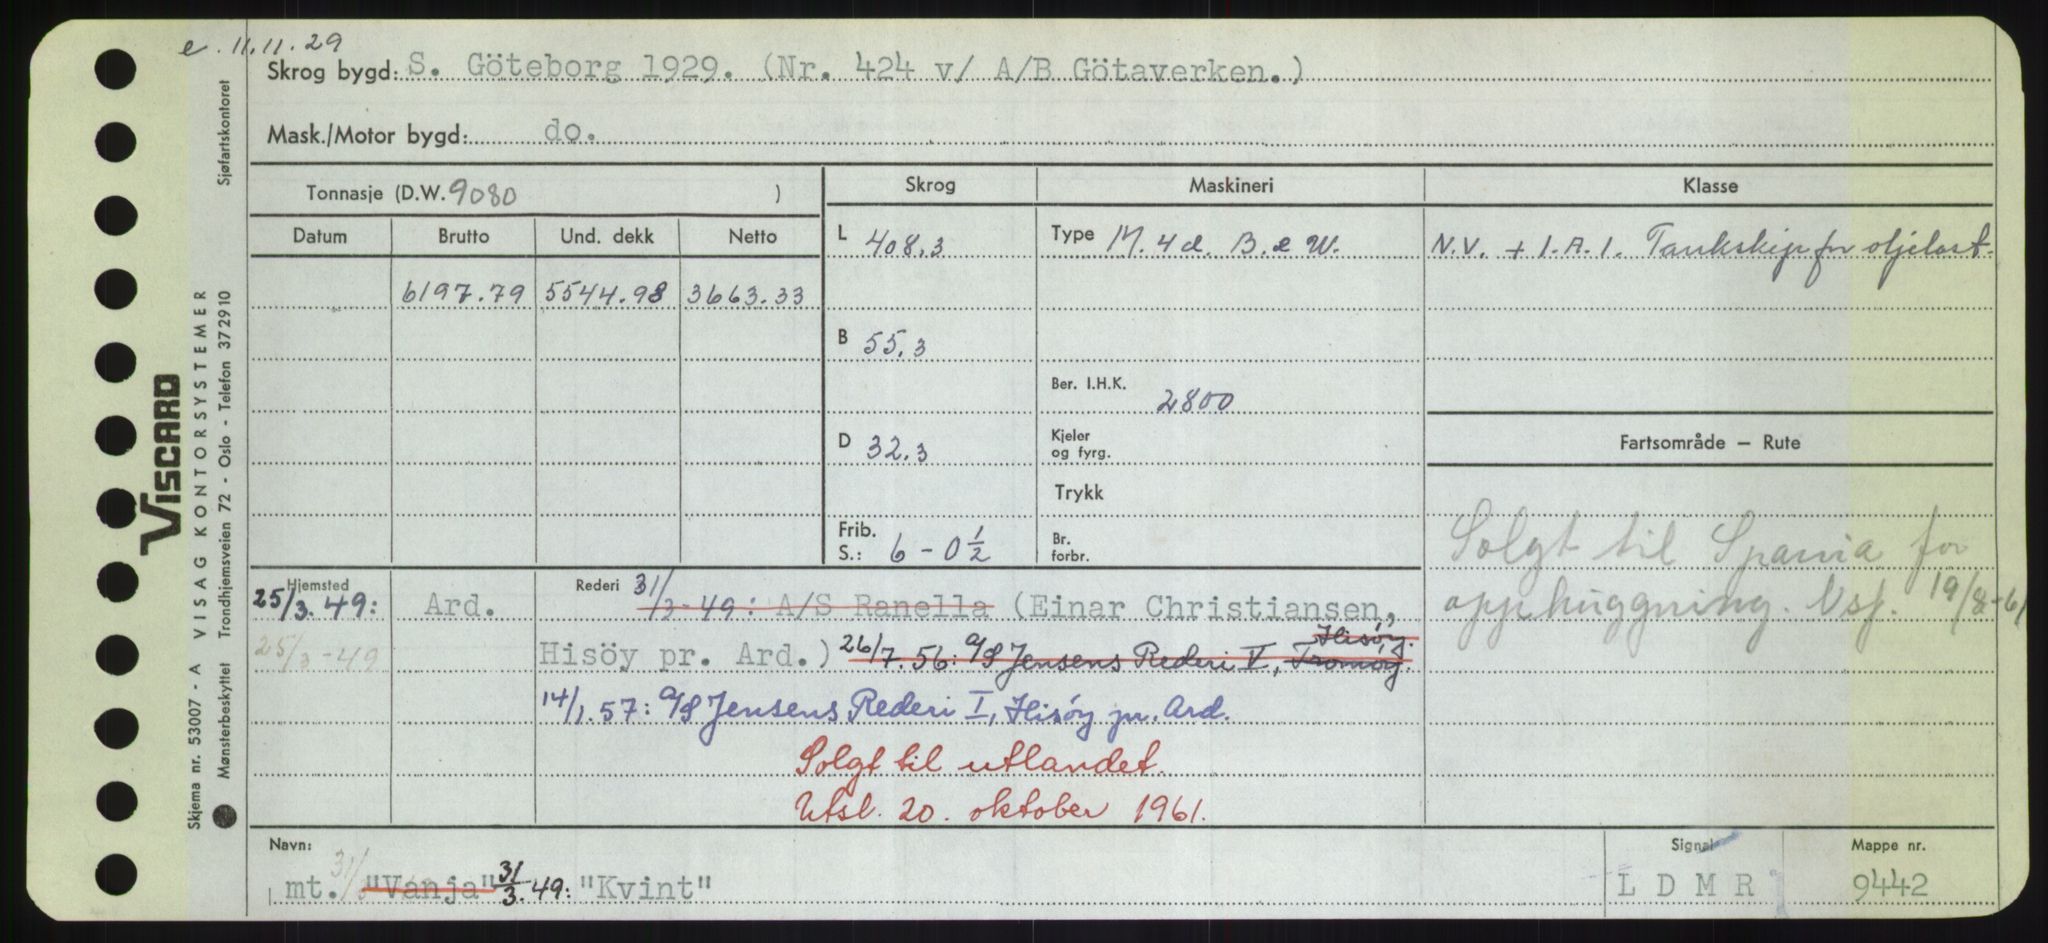 e. 11.11.29
Skrog bygd: S. Göteborg 1929. (Nr. 424 v/ A/B Götaverken.)
Mask./Motor bygd: do.
Tonnasje (D.W. 9080 )
Skrog Maskineri Klasse
Datum Brutto Und. dekk Netto
L 408,3 Type M. 4 d. B. & W. N.V. + 1. A. 1. Tankskip for oljelast.
6197.79 5544.98 3663.33
B 55,3
Ber. I.H.K. 2800
D 32,3 Kjeler og fyrg. Fartsområde – Rute
Trykk
Frib. S.: 6 – 0 1/2 Br. forbr.
Solgt til Spania for
opphuggning. Nsf. 19/8-61
Hjemsted Rederi
25/3. 49: Ard. 31/3-49: A/S Ranella (Einar Christiansen,
25/3-49 Hisöy pr. Ard.) 26/7. 56: A/S Jensens Rederi V, Tromøy. Hisøy.
14/1. 57: A/S Jensens Rederi I, Hisøy pr. Ard.
Solgt til utlandet.
Utsl. 20. oktober 1961.
Navn: Signal Mappe nr.
mt. 31/3 "Vanja" 31/3. 49: "Kvint" L D M R 9442
Skjema nr. 53007 - A VISAG KONTORSYSTEMER
Mønsterbeskyttet Trondhjemsveien 72 - Oslo - Telefon 372910 Sjøfartskontoret
VISCARD